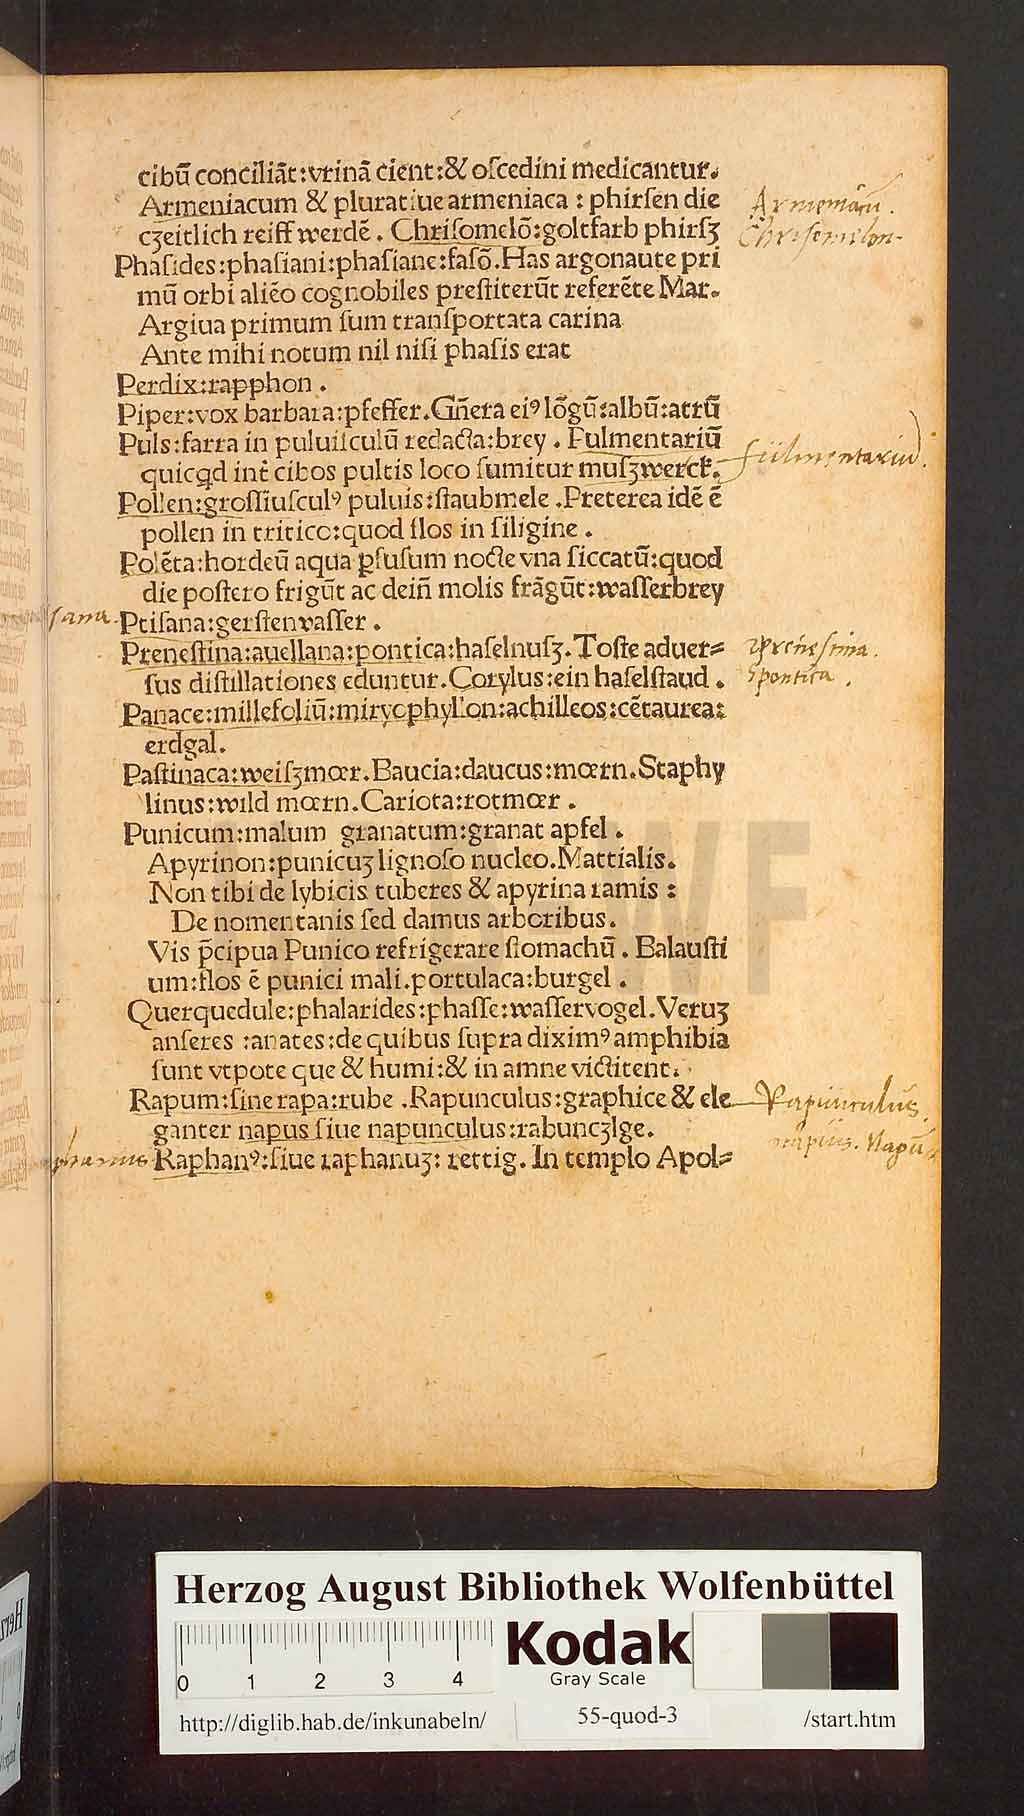 cibū conciliāt:vrinā cient:& oſcedini medicantur.
Armeniacum & pluratiue armeniaca : phirſen die
cʒeitlich reiff werdē . Chriſomelō:goltfarb phirſʒ
Phaſides:phaſiani:phaſiane:faſō.Has argonaute pri
mū orbi aliēo cognobiles preſtiterūt referēte Mar.
Argiua primum ſum tranſportata carina
Ante mihi notum nil niſi phaſis erat
Perdix:rapphon .
Piper:vox barbara:pfeffer.Gñera eiꝰ lōgū:albū:atrū
Puls:farra in puluiſculū redacta:brey . Pulmentariū
quicqd int̄ cibos pultis loco ſumitur muſʒwerck.
Pollen:groſſiuſculꝰ puluis:ſtaubmele .Preterea idē ē
pollen in tritico:quod flos in ſiligine .
Polēta:hordeū aqua ꝑfuſum nocte vna ſiccatū:quod
die poſtero frigūt ac deiñ molis frāgūt:waſſerbrey
Ptiſana:gerſtenvaſſer .
Preneſtina:auellana:pontica:haſelnuſʒ.Toſte aduer=
ſus diſtillationes eduntur.Corylus:ein haſelſtaud .
Panace:millefoliū:miryophyllon:achilleos:cētaurea:
erdgal.
Paſtinaca:weiſʒmœr.Baucia:daucus:mœrn.Staphy
linus:wild mœrn.Cariota:rotmœr .
Punicum:malum granatum:granat apfel .
Apyrinon:punicuʒ lignoſo nucleo.Mattialis.
Non tibi de lybicis tuberes & apyrina ramis :
De nomentanis ſed damus arboribus.
Vis p̄cipua Punico refrigerare ſtomachū . Balauſti
um:flos ē punici mali.portulaca:burgel .
Querquedule:phalarides:phaſſe:waſſervogel.Veruʒ
anſeres :anates:de quibus ſupra diximꝰ amphibia
ſunt vtpote que & humi:& in amne victitent.
Rapum:ſine rapa:rube .Rapunculus:graphice & ele
ganter napus ſiue napunculus:rabuncʒlge.
Raphanꝰ:ſiue raphanuʒ: rettig. In templo Apol=
Armeniacū.
Chrisomelon.
Pulmentariū.
sana.
Prenestina.
pontica.
Rapunculus.
napus. Napū
phanus
HAB WF
Herzog August Bibliothek Wolfenbüttel
0 1 2 3 4
Kodak
Gray Scale
http://diglib.hab.de/inkunabeln/ 55-quod-3 /start.htm